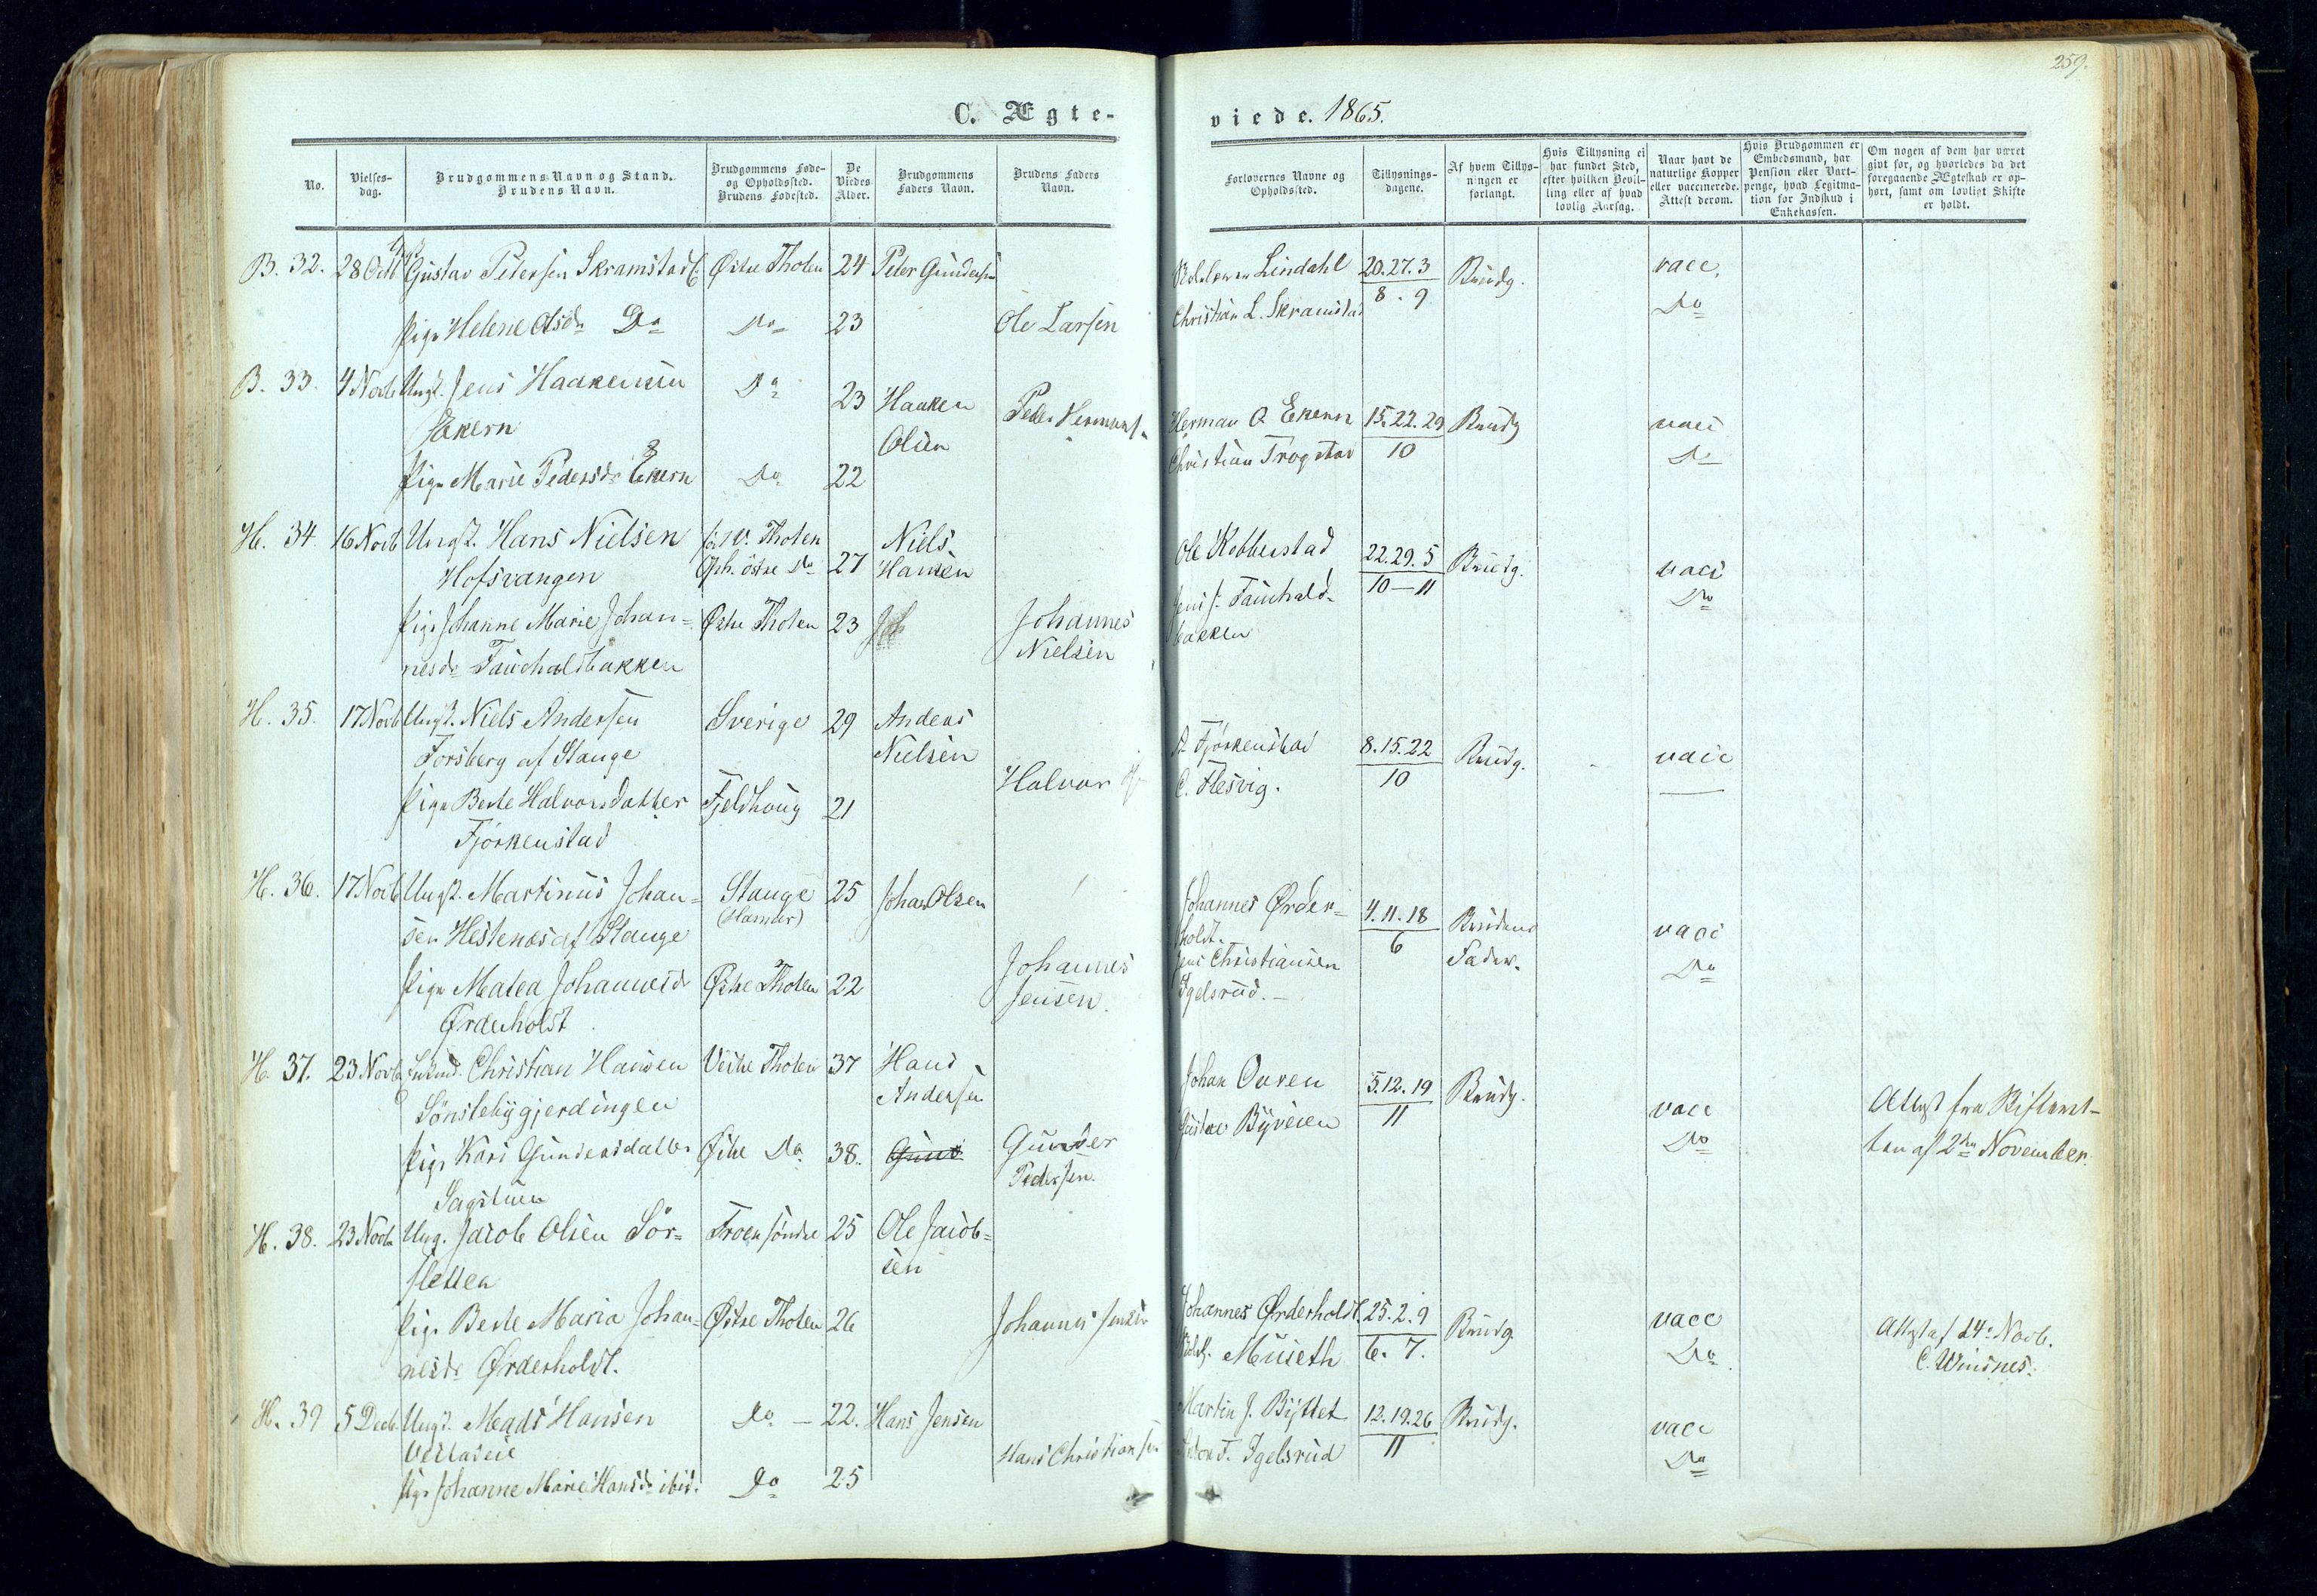 259.
C. Ægte-
viede. 1865.
No.
Vielses-
dag.
Brudgommens Navn og Stand.
Brudens Navn.
Brudgommens Føde-
og Opholdssted.
Brudens Fødested.
De
Viedes
Alder.
Brudgommens
Faders Navn.
Brudens Faders
Navn.
Forlovernes Navne og
Opholdssted.
Tillysnings-
dagene.
Af hvem Tillys-
ningen er
forlangt.
Hvis Tillysning ei
har fundet Sted,
efter hvilken Bevil-
ling eller af hvad
lovlig Aarsag.
Naar havt de
naturlige Kopper
eller vaccinerede.
Attest derom.
Hvis Brudgommen er
Embedsmand, har
Pension eller Vart-
penge, hvad Legitima-
tion for Indskud i
Enkekassen.
Om nogen af dem har været
givt før, og hvorledes da det
foregaaende Ægteskab er op-
hørt, samt om lovligt Skifte
er holdt.
B. 32. 28 Octb Gustav Petersen Skramstad Østre Thoten 24 Peter Gundersen
Lindahl 20.27.3 Brudg. vacc.
Christian L. Skramstad 8. 9 Do
Pige Helene Olsdr Do Do 23 Ole Larsen
B. 33. 4 Novb Ungk. Jens Haakensen Do 23 Haaken Peder Hermans.
Ekern Olsen
Herman O Ekern 15.22.29 Brudg vacc
Christian Trogstad 10 Do
Pige Marie Pedersdr Ekern Do 22
H. 34 16 Novb Ungk. Hans Nielsen fød V. Thoten Niels
Hofsvangen Oph. østre Do 27 Hansen
Ole Kobberstad 22.29.5 Brudg. vacc
Jens J. Fauchald- 10-11 Do
bakken
Pige Johanne Marie Johan- Østre Thoten 23 Joh Johannes
nesdr Fauchaldbakken Nielsen
H. 35. 17 Novb Ungk. Niels Andersen Sverige 29 Anders
Forsberg af Stange Nielsen
Fjørkenstad 8.15.22 Brudg. vacc
C. Flesvig. 10
Pige Berte Halvorsdatter Fjeldhoug 21 Halvor
Fjørkenstad
H. 36. 17 Novb Ungk. Martinus Johan- Stange 25 Johan Olsen
sen Hestenæs af Stange (Hamar)
Johannes Ørder- 4.11.18 Brudens vacc
holdt. 6 Fader. Do
Jens Christiansen
Igelsrud.
Pige Matea Johannesdr Østre Thoten 22 Johannes
Ørderholdt Jensen.
H. 37. 23 Novb Enkmd. Christian Hansen Vestre Thoten 37 Hans
Sønstebygjerdingen Andersen
Johan Ouren 5.12.19 Brudg. vacc Attest fra Skifteret-
Byveien 11 Do ten af 2den November.
Pige Kari Gundersdatter Østre Do 38. Gund Gunder
Sagstuen Pedersen.
H. 38. 23 Novb Ung. Jacob Olsen Sør- Troen søndre 25 Ole Jacob-
sletten sen
Pige Berte Maria Johan- Østre Thoten 26 Johannes Jensen
nesdr Ørderholdt.
Johannes Ørderholdt. 25.2.9 Brudg. vacc Attest af 14. Novb.
Museth 6. 7. Do C. Winsnes.
H. 39 5 Decb. Ungk. Mads Hansen Do 22. Hans Jensen
Martin J. Byttet 12.19.26 Brudg. vacc
F. Igelsrud 11 Do
Hans Christiansen
Pige Johanne Marie Hansdr ibid. Do 25